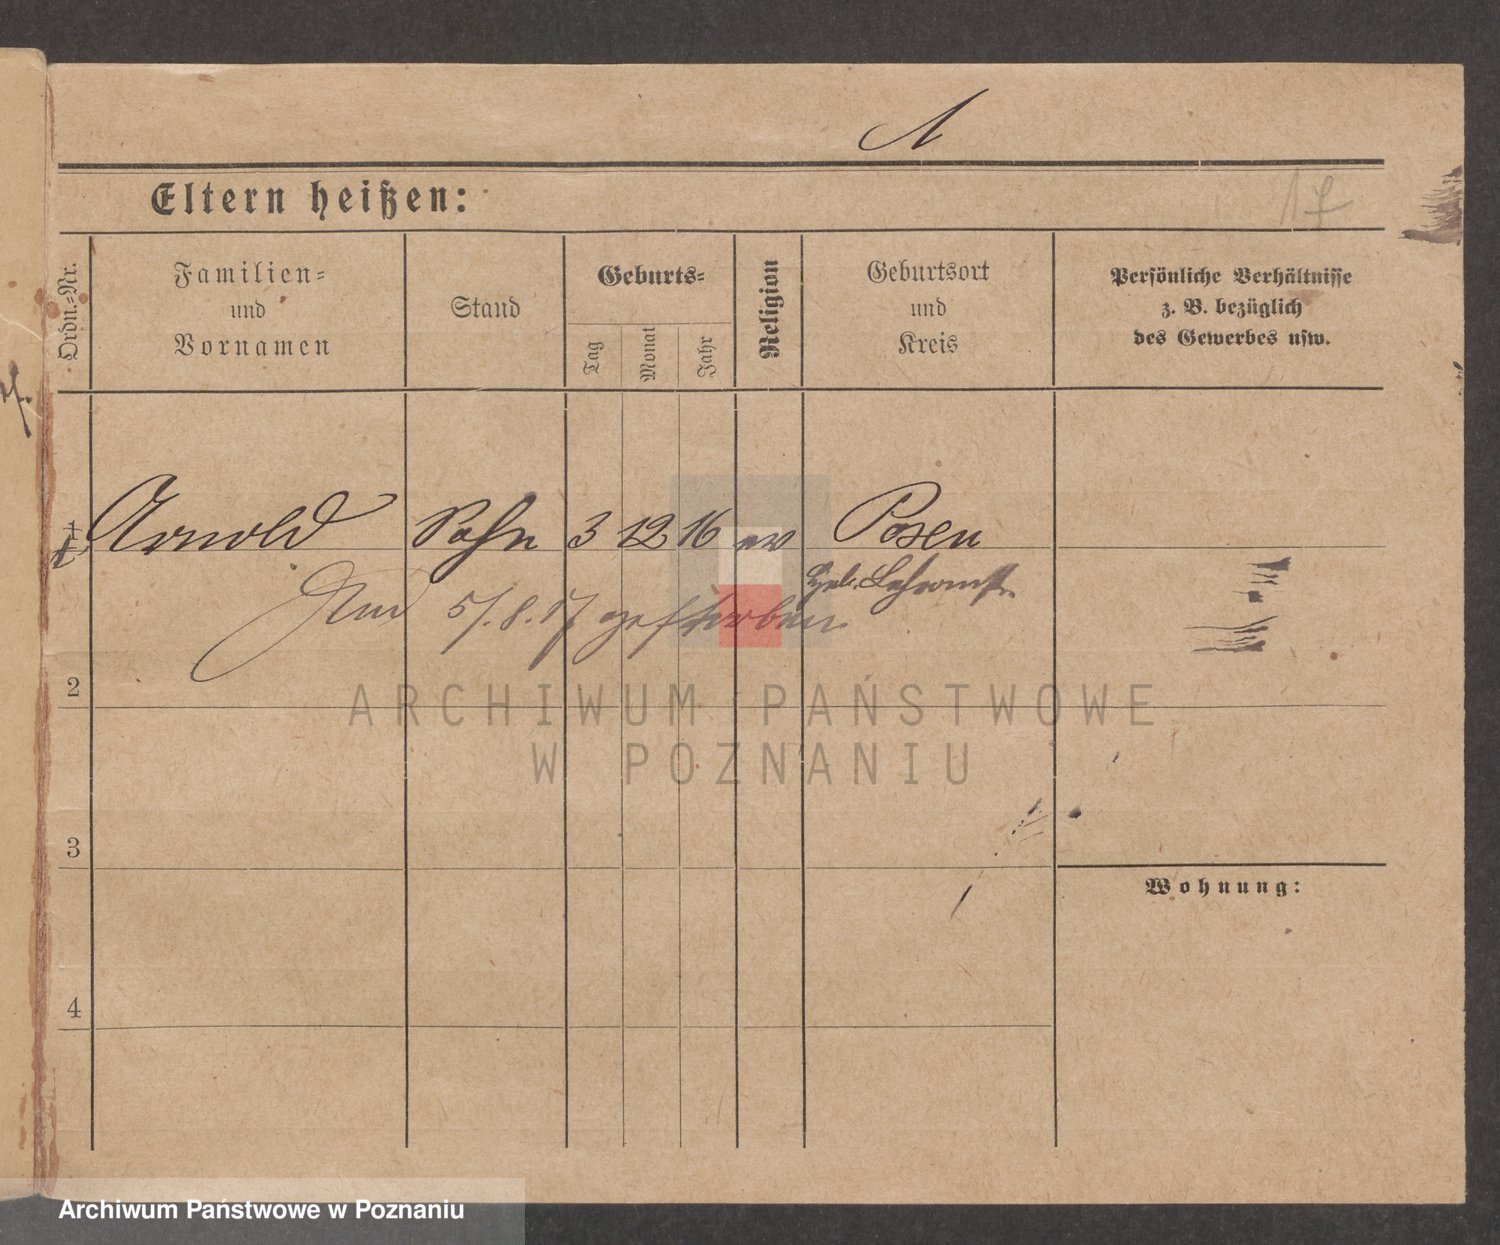 1
17
Eltern heißen:
Ordn.-Nr.
Familien-
und
Vornamen
Stand
Geburts-
Tag
Monat
Jahr
Religion
Geburtsort
und
Kreis
Persönliche Verhältnisse
z. B. bezüglich
des Gewerbes usw.
1 Arnold Sohn 3 12 16 ev Posen
Heb. Lehranst.
Kind 5/8.17 gestorben.
2
ARCHIWUM PAŃSTWOWE
W POZNANIU
3
Wohnung:
4
Archiwum Państwowe w Poznaniu